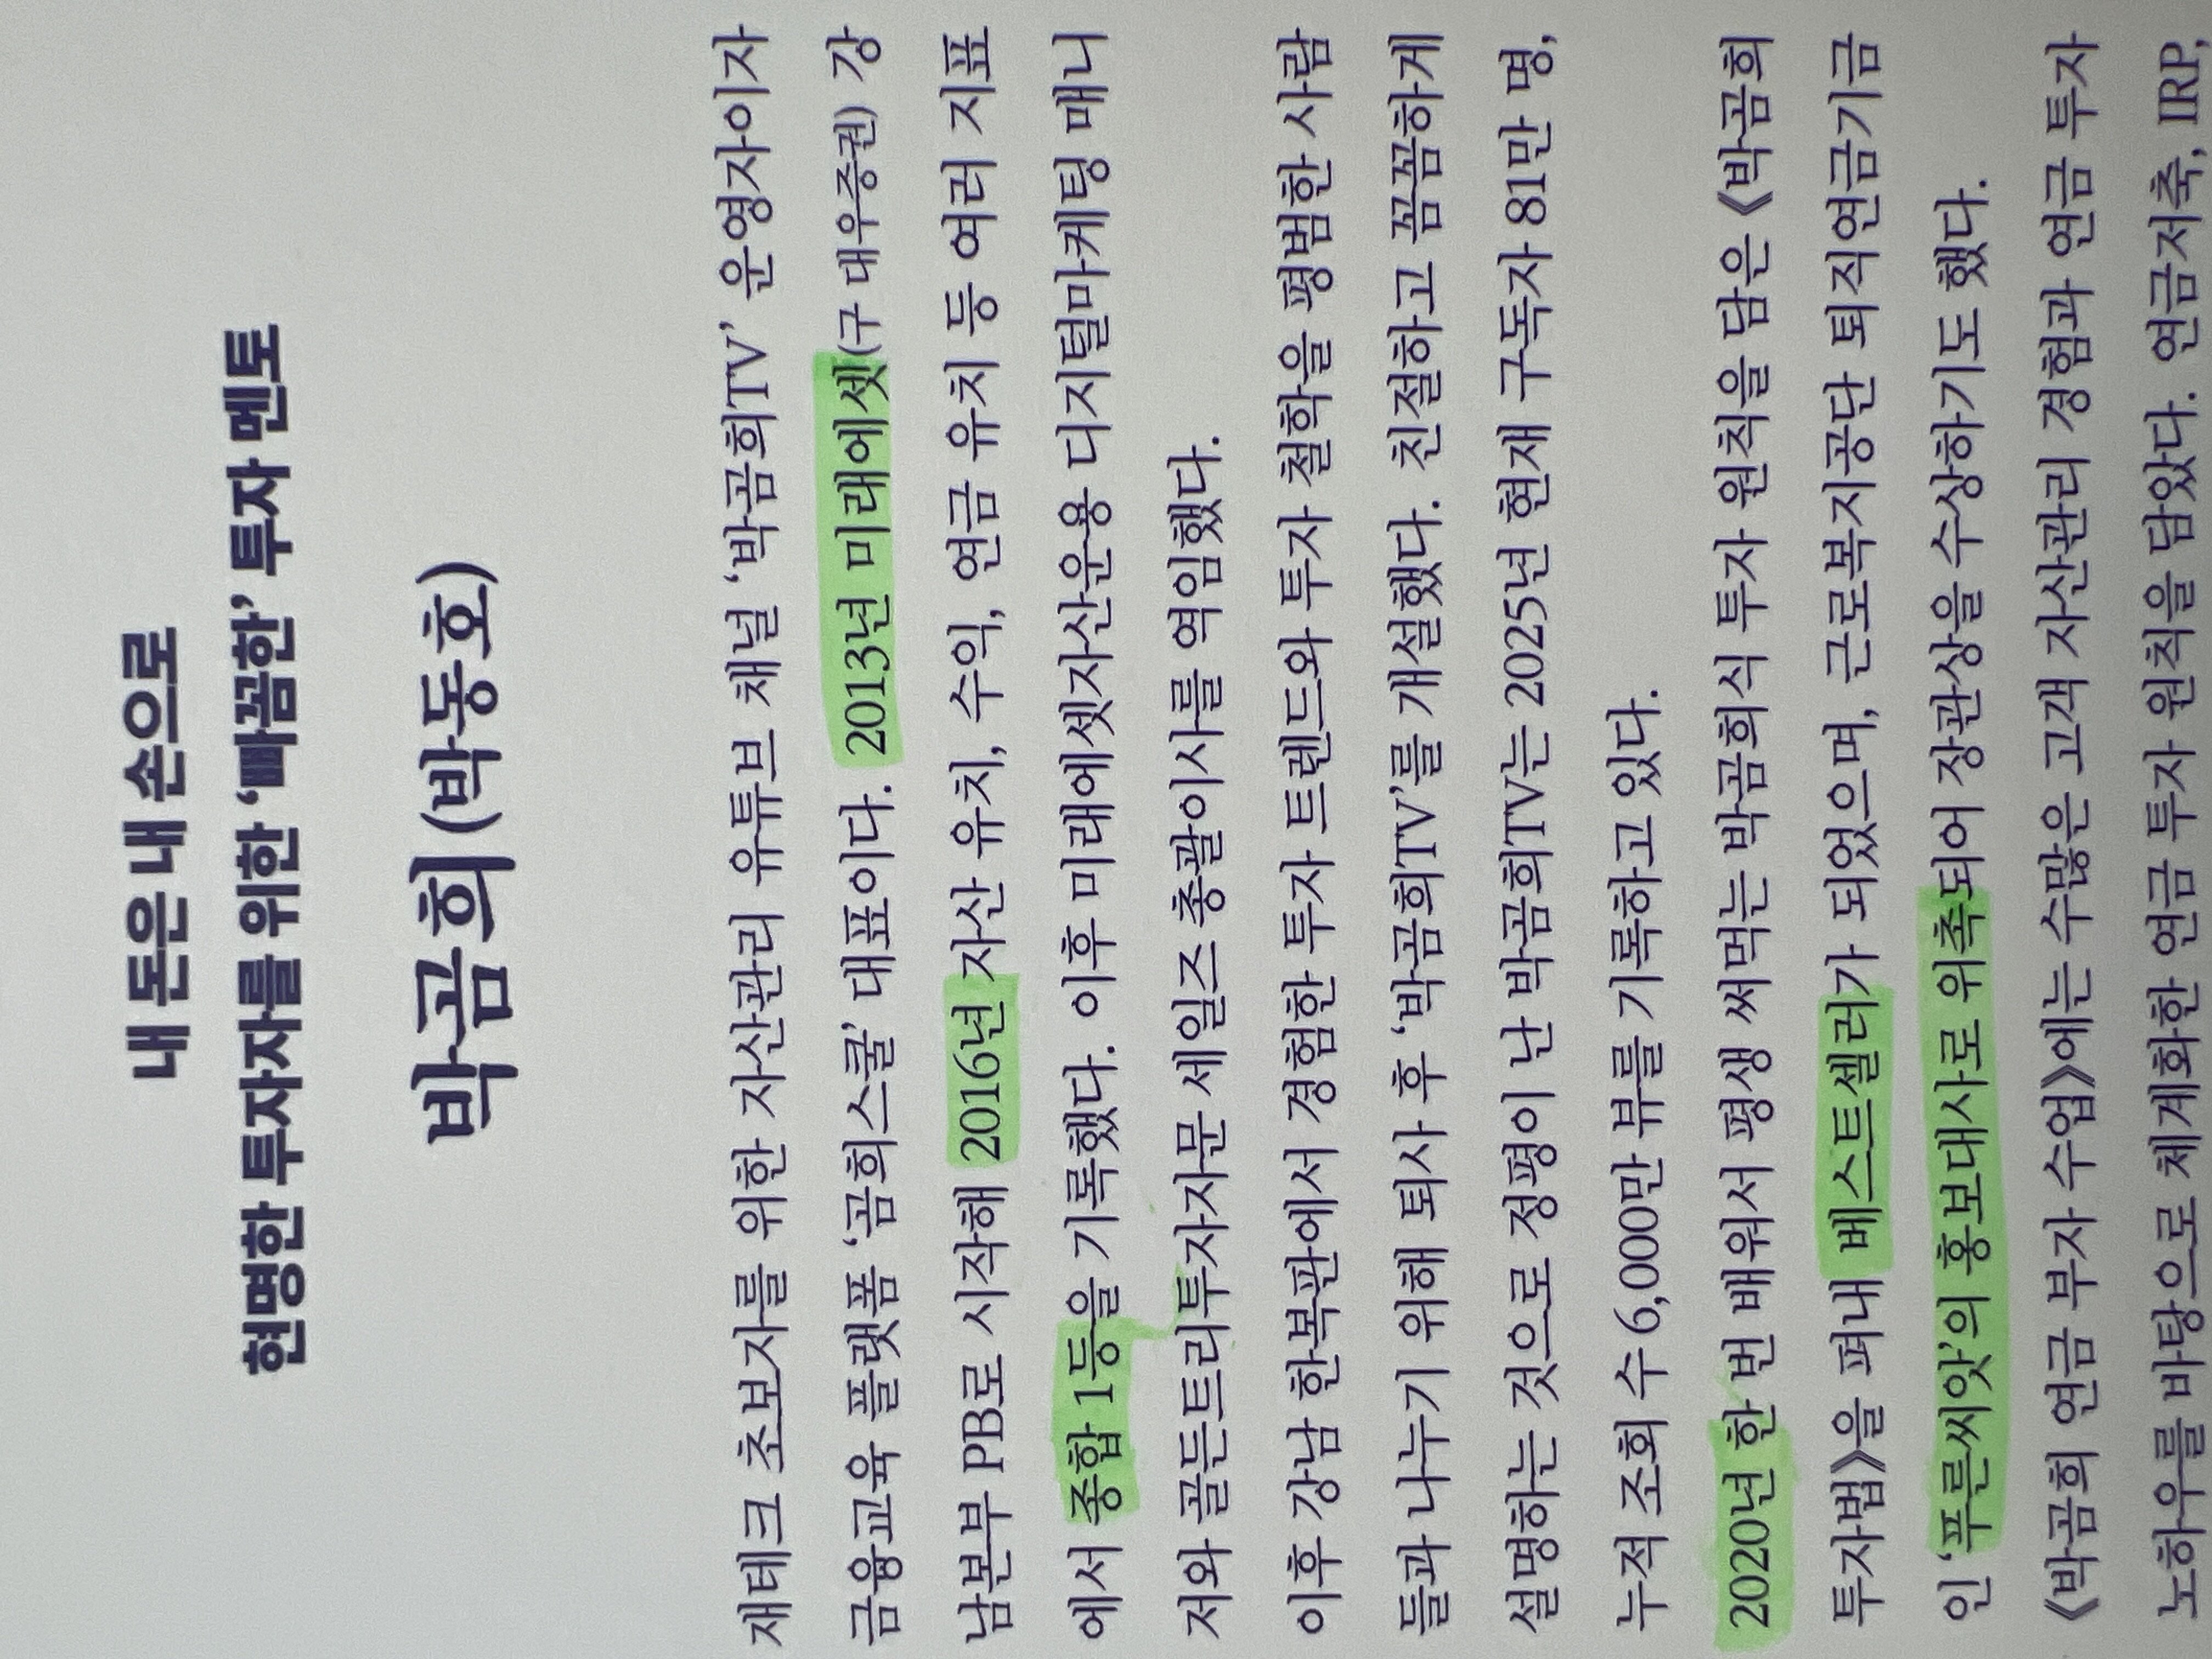 내 돈은 내 손으로
현명한 투자자를 위한 ‘빠꼼한’ 투자 멘토
박곰희(박동호)
재테크 초보자를 위한 자산관리 유튜브 채널 ‘박곰희TV’ 운영자이자
금융교육 플랫폼 ‘곰희스쿨’ 대표이다. 2013년 미래에셋(구 대우증권) 강
남본부 PB로 시작해 2016년 자산 유치, 수익, 연금 유치 등 여러 지표
에서 종합 1등을 기록했다. 이후 미래에셋자산운용 디지털마케팅 매니
저와 골든트리투자자문 세일즈 총괄이사를 역임했다.
이후 강남 한복판에서 경험한 투자 트렌드와 투자 철학을 평범한 사람
들과 나누기 위해 퇴사 후 ‘박곰희TV’를 개설했다. 친절하고 꼼꼼하게
설명하는 것으로 정평이 난 박곰희TV는 2025년 현재 구독자 81만 명,
누적 조회 수 6,000만 뷰를 기록하고 있다.
2020년 한 번 배워서 평생 써먹는 박곰희식 투자 원칙을 담은 《박곰희
투자법》을 펴내 베스트셀러가 되었으며, 근로복지공단 퇴직연금기금
인 ‘푸른씨앗’의 홍보대사로 위촉되어 장관상을 수상하기도 했다.
《박곰희 연금 부자 수업》에는 수많은 고객 자산관리 경험과 연금 투자
노하우를 바탕으로 체계화한 연금 투자 원칙을 담았다. 연금저축, IRP,